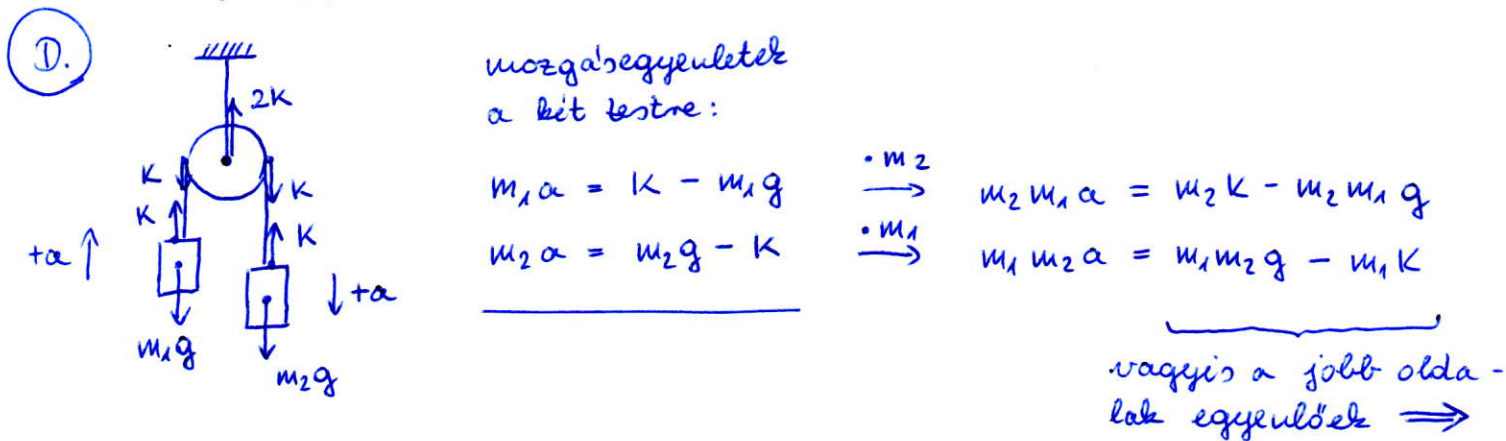 D.
2K
K K
K K
+a ↑ ↓ +a
m₁g
m₂g
mozgásegyenletek
a két testre:
m₁a = K - m₁g
m₂a = m₂g - K
·m₂
→
·m₁
→
m₂m₁a = m₂K - m₂m₁g
m₁m₂a = m₁m₂g - m₁K
vagyis a jobb olda-
lak egyenlőek ⟹